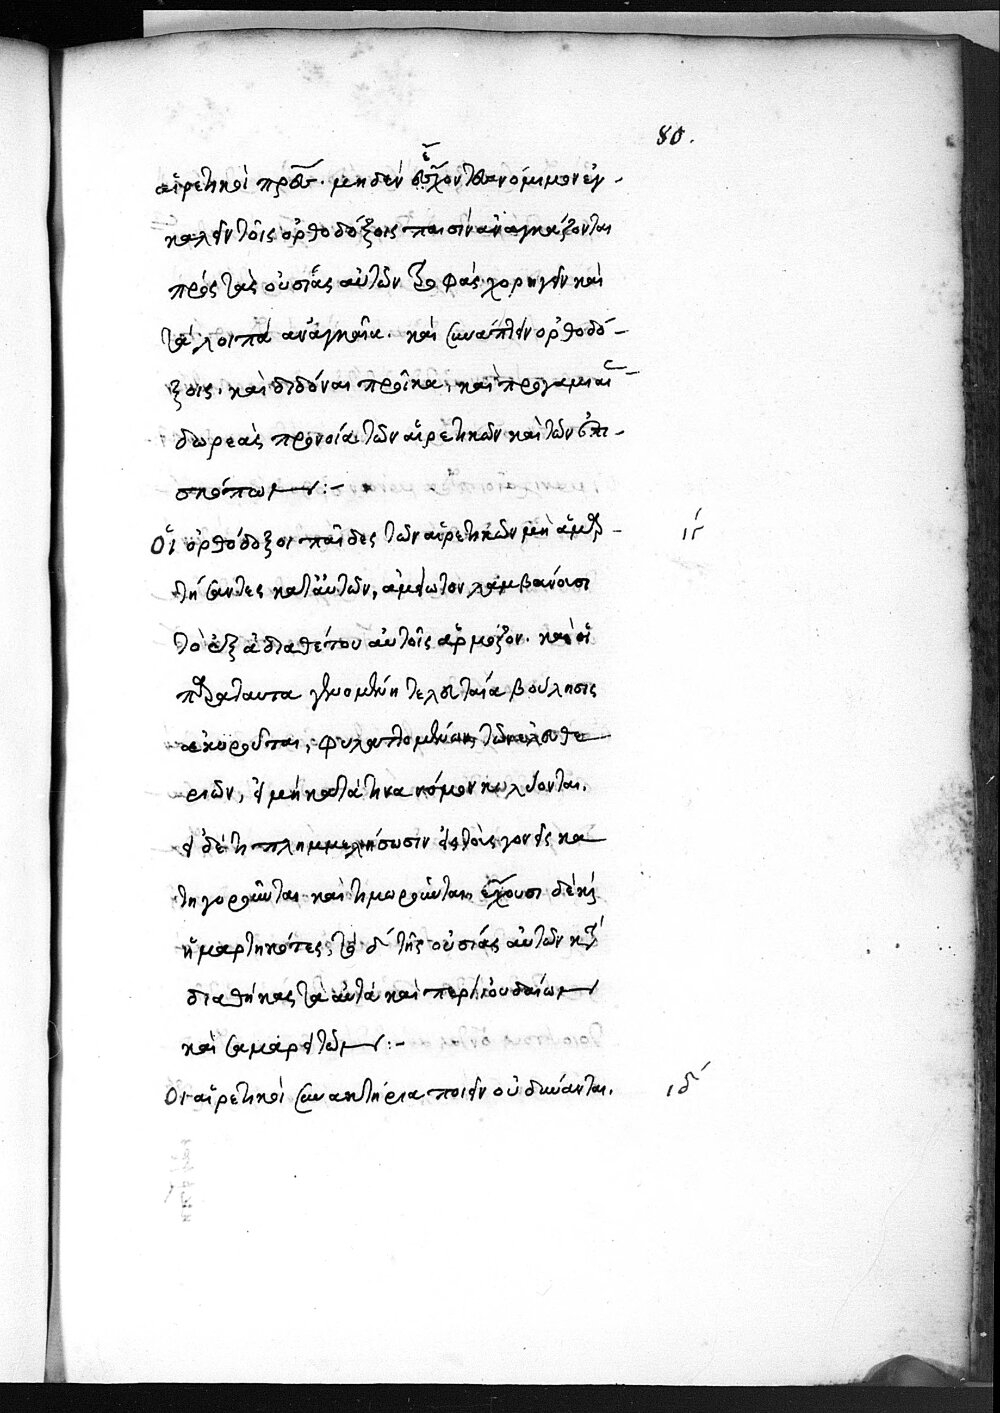 80.
αἱρετικοὶ πρὸς. μηδὲν ἔχοντες νόμιμον ἐγ-
καλεῖν τοῖς ὀρθοδόξοις παισὶν ἀναγκάζονται
πρὸς τὰς οὐσίας αὐτῶν τροφὰς χορηγεῖν καὶ
τὰ λοιπὰ ἀναγκαῖα. καὶ συνάπτειν ὀρθοδό-
ξοις. καὶ διδόναι προῖκα, καὶ προγαμιαί
δωρεὰς προνοία τῶν αἱρετικῶν καὶ τῶν ἐπι-
σκόπων:-
Οἱ ὀρθόδοξοι παῖδες τῶν αἱρετικῶν μὴ ἁμαρ- ιγ
τήσαντες κατ' αὐτῶν, ἀμείωτον λαμβάνουσι
τὸ ἐξ ἀδιαθέτου αὐτοῖς ἁρμόζον. καὶ ἡ
παρὰ ταῦτα γενομένη τελευταία βούλησις
ἀκυροῦται, φυλαττομένης τῶν ἐλευθε
ριῶν, εἰ μὴ κατά τινα νόμον κωλύονται.
εἰ δέ τι πλημμελήσωσιν εἰς τοὺς γονεῖς κα
τηγοροῦνται καὶ τιμωροῦνται, ἔχουσι δὲ καὶ
ἡμαρτηκότες τὸ δ' τῆς οὐσίας αὐτῶν κατὰ
διαθήκας τὰ αὐτὰ καὶ περὶ ἰουδαίων
καὶ σαμαρειτῶν:-
Οἱ αἱρετικοὶ συνακτήρια ποιεῖν οὐ δύνανται. ιδ